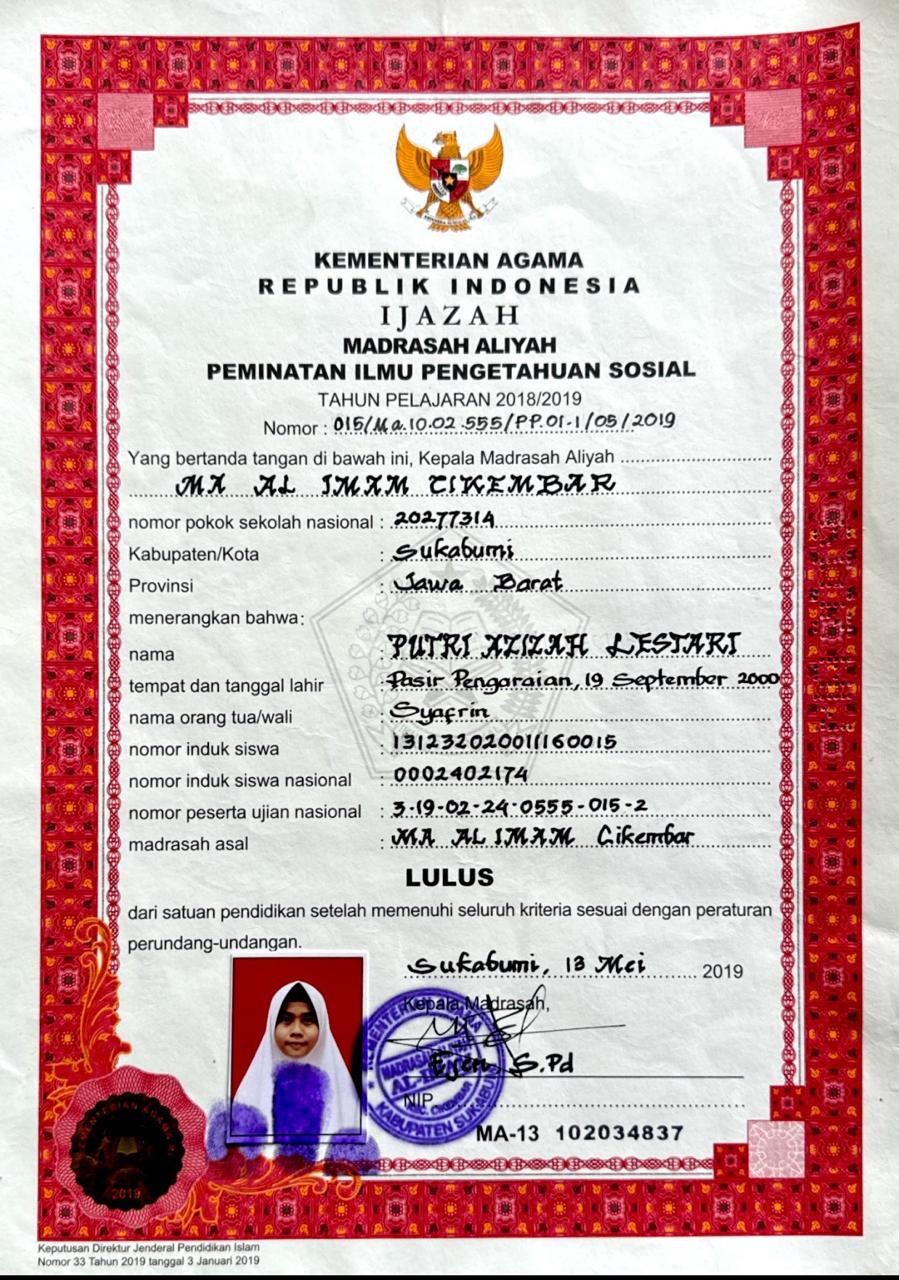 KEMENTERIAN AGAMA
REPUBLIK INDONESIA
IJAZAH
MADRASAH ALIYAH
PEMINATAN ILMU PENGETAHUAN SOSIAL
TAHUN PELAJARAN 2018/2019
Nomor : 015/Ma.10.02.555/PP.01-1/05/2019
Yang bertanda tangan di bawah ini, Kepala Madrasah Aliyah
MA AL IMAM CIKEMBAR
nomor pokok sekolah nasional : 20277314
Kabupaten/Kota : Sukabumi
Provinsi : Jawa Barat
menerangkan bahwa:
nama : PUTRI AZIZAH LESTARI
tempat dan tanggal lahir : Pasir Pengaraian, 19 September 2000
nama orang tua/wali : Syafrin
nomor induk siswa : 131232020011160015
nomor induk siswa nasional : 0002402174
nomor peserta ujian nasional : 3-19-02-24-0555-015-2
madrasah asal : MA AL IMAM Cikembar
LULUS
dari satuan pendidikan setelah memenuhi seluruh kriteria sesuai dengan peraturan
perundang-undangan.
Sukabumi, 13 Mei 2019
Kepala Madrasah,
S.Pd
NIP
KABUPATEN SUKABUMI
MA-13 102034837
KEMENTERIAN AGAMA
2019
Keputusan Direktur Jenderal Pendidikan Islam
Nomor 33 Tahun 2019 tanggal 3 Januari 2019